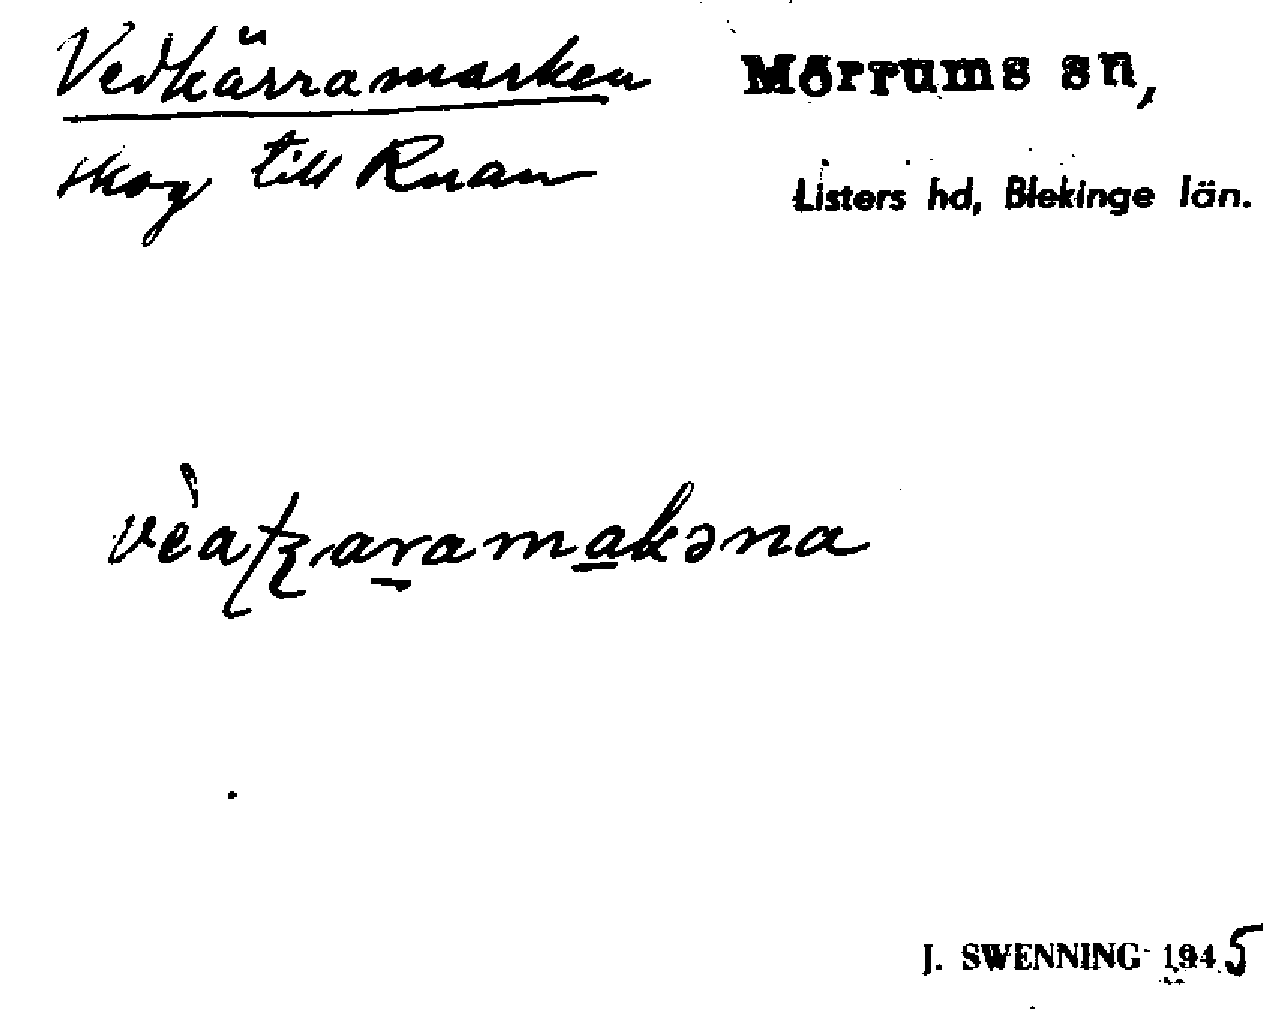 Vedkärramarken
Mörrums sn,
skog till Ruan
Listers hd, Blekinge län.
J. SWENNING 1945